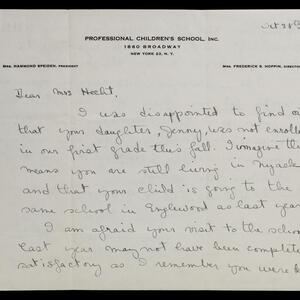 Oct 28th
PROFESSIONAL CHILDREN'S SCHOOL, INC.
1860 BROADWAY
NEW YORK 23, N. Y.
MRS. HAMMOND SPEIDEN, PRESIDENT
MRS. FREDERICK S. HOPPIN, DIRECTOR
Dear Mrs Hecht,
I was disappointed to find out
that your daughter, Jenny, was not enrolled
in our first grade this fall. I imagine this
means you are still living in Nyack
and that your child is going to the
same school in Englewood as last year.
I am afraid your visit to the school
last year may not have been completely
satisfactory as I remember you were